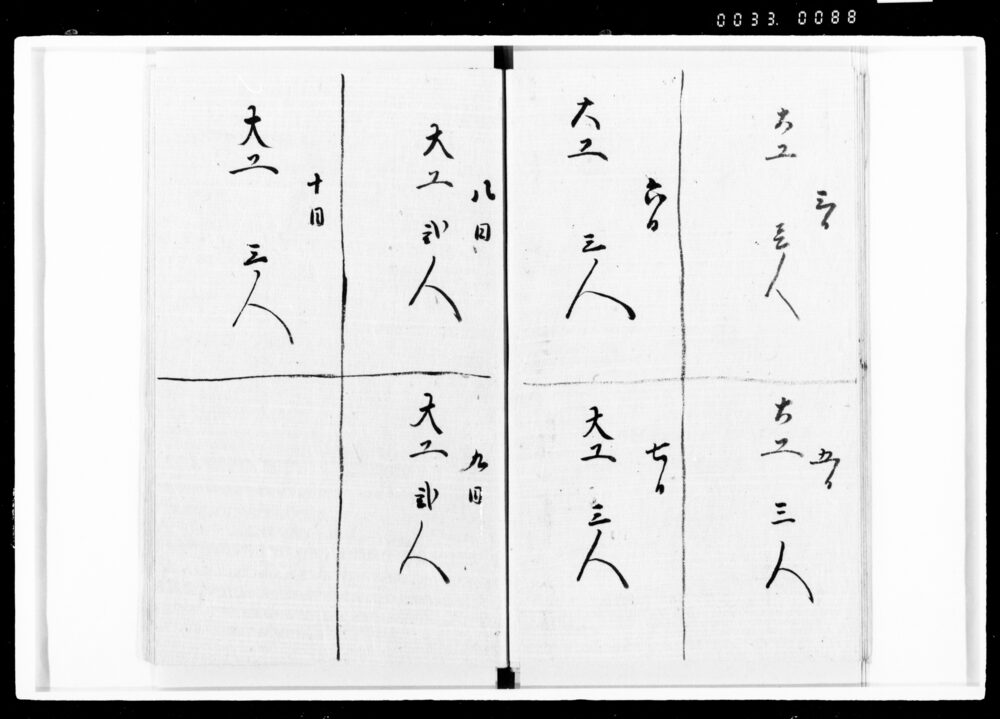 0033. 0088
三日
大工 三人
五日
大工 三人
六日
大工 三人
七日
大工 三人
八日
大工 弐人
九日
大工 弐人
十日
大工 三人